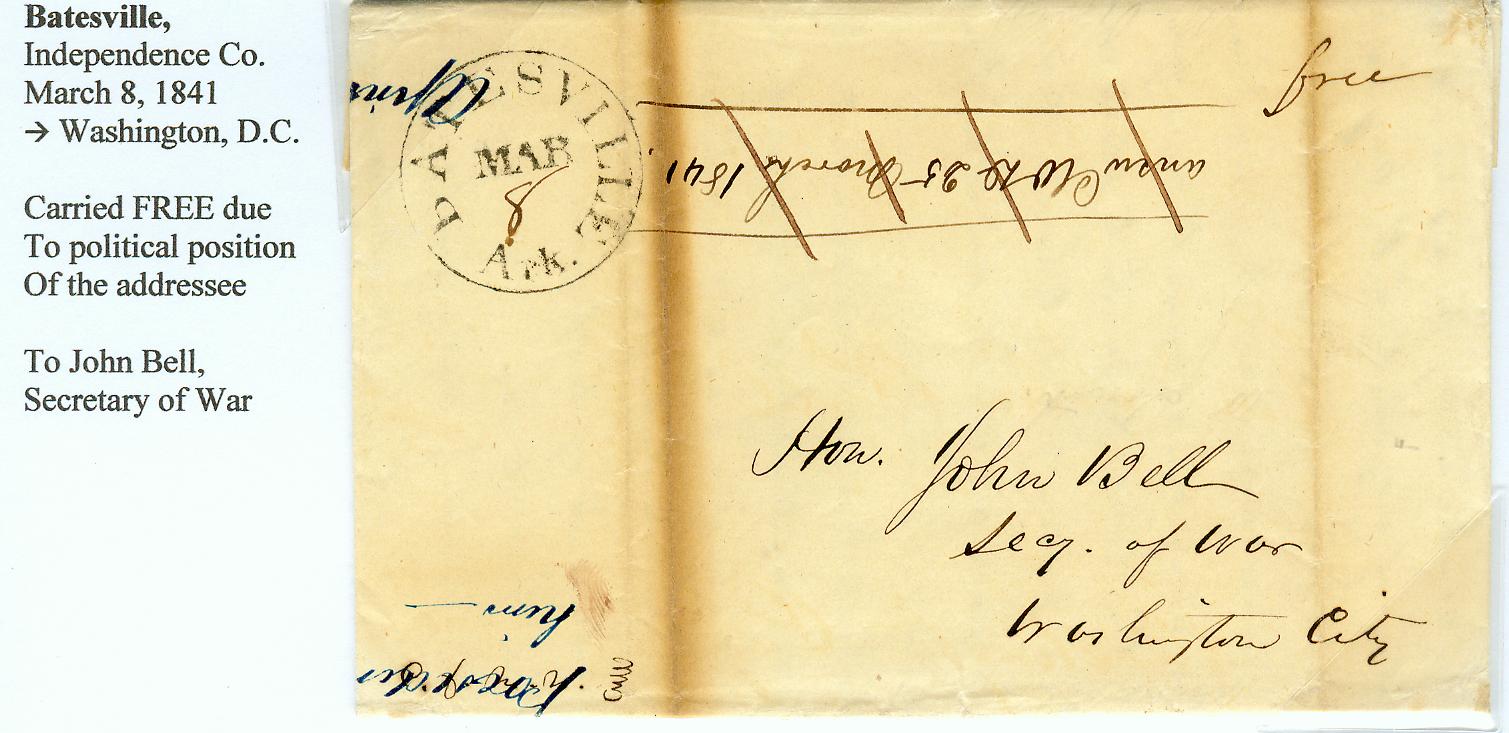 Batesville,
Independence Co.
March 8, 1841
→ Washington, D.C.
Carried FREE due
To political position
Of the addressee
To John Bell,
Secretary of War
BATESVILLE
MAR
8
Ark.
free
25 March 1841.
Hon. John Bell
Secy. of War
Washington City